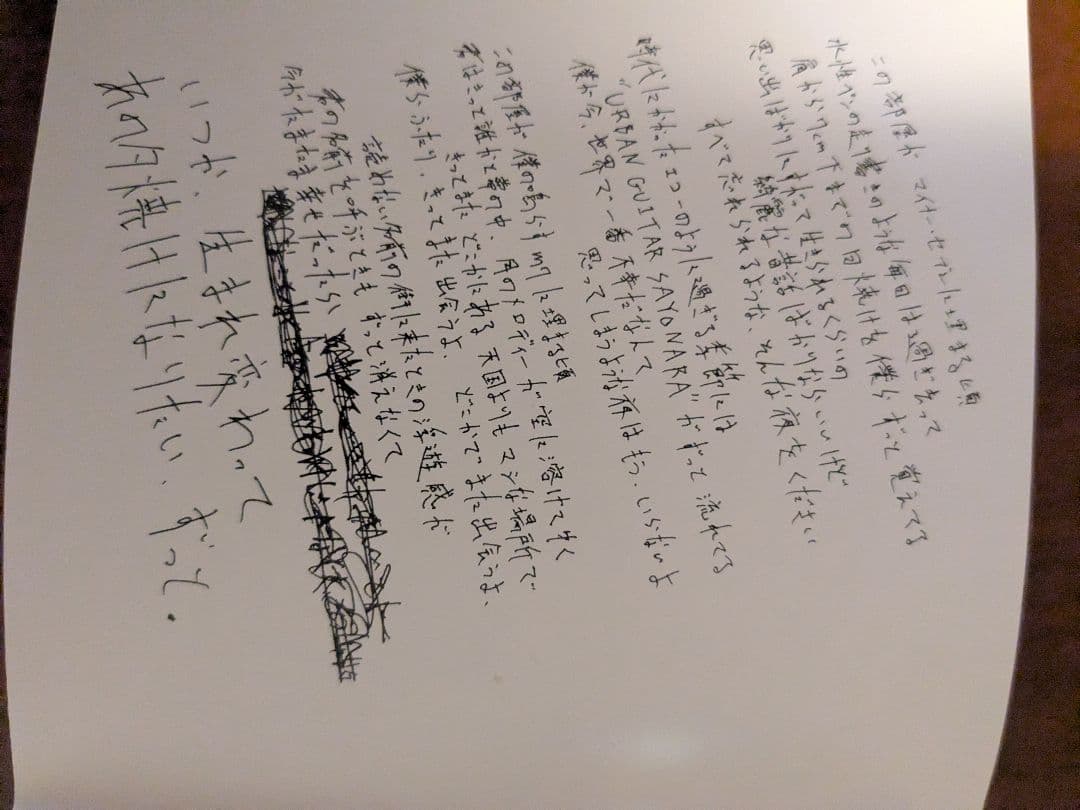 この部屋が マイナーセブンに埋まる頃
水性ペンの走り書きのような毎日は過ぎ去って
肩から7cm下までの日焼けを僕らずっと覚えてる
思い出ばかりにすがって生きられるくらいの
綺麗な昔話ばかりならいいけど
すべて忘れられるような、そんな夜をください
時代にかかったエコーのように過ぎる季節には
"URBAN GUITAR SAYONARA"がずっと流れてる
僕が今、世界で一番不幸だなんて
思ってしまうような夜はもう、いらないよ
この部屋が 僕の鳴らすm7に埋まる頃
君はきっと誰かと夢の中、月のメロディーが空に溶けてゆく
きっとまた どこかにある 天国よりもマシな場所で
きっとまた出会うよ、どこかでまた出会うよ、
僕らふたり、きっとまた出会うよ
読めない名前の街に来たときの浮遊感だ
君の名前を呼ぶときも ずっと消えなくて
今がたまたま幸せだったら
いつか、生まれ変わって
あの準日になりたい、ずっと。